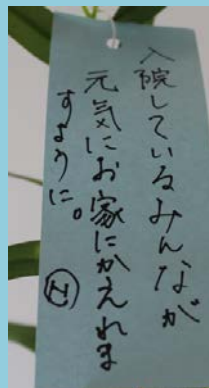 入院しているみんなが
元気にお家にかえれま
すように。